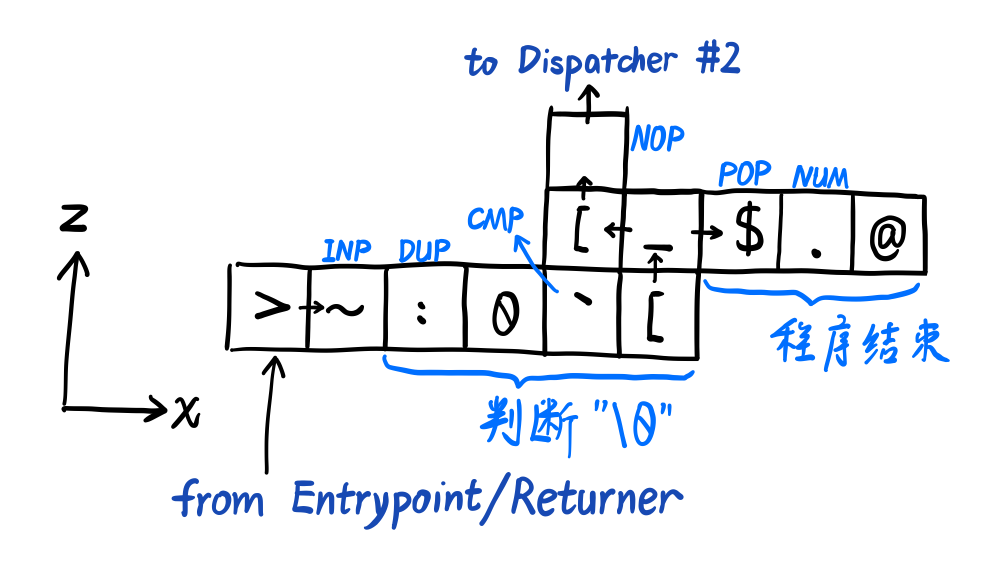 to Dispatcher #2
NOP
POP NUM
CMP [ _ $ . @
z
INP DUP
> ~ : 0 ` [
程序结束
x
判断"\0"
from Entrypoint/Returner